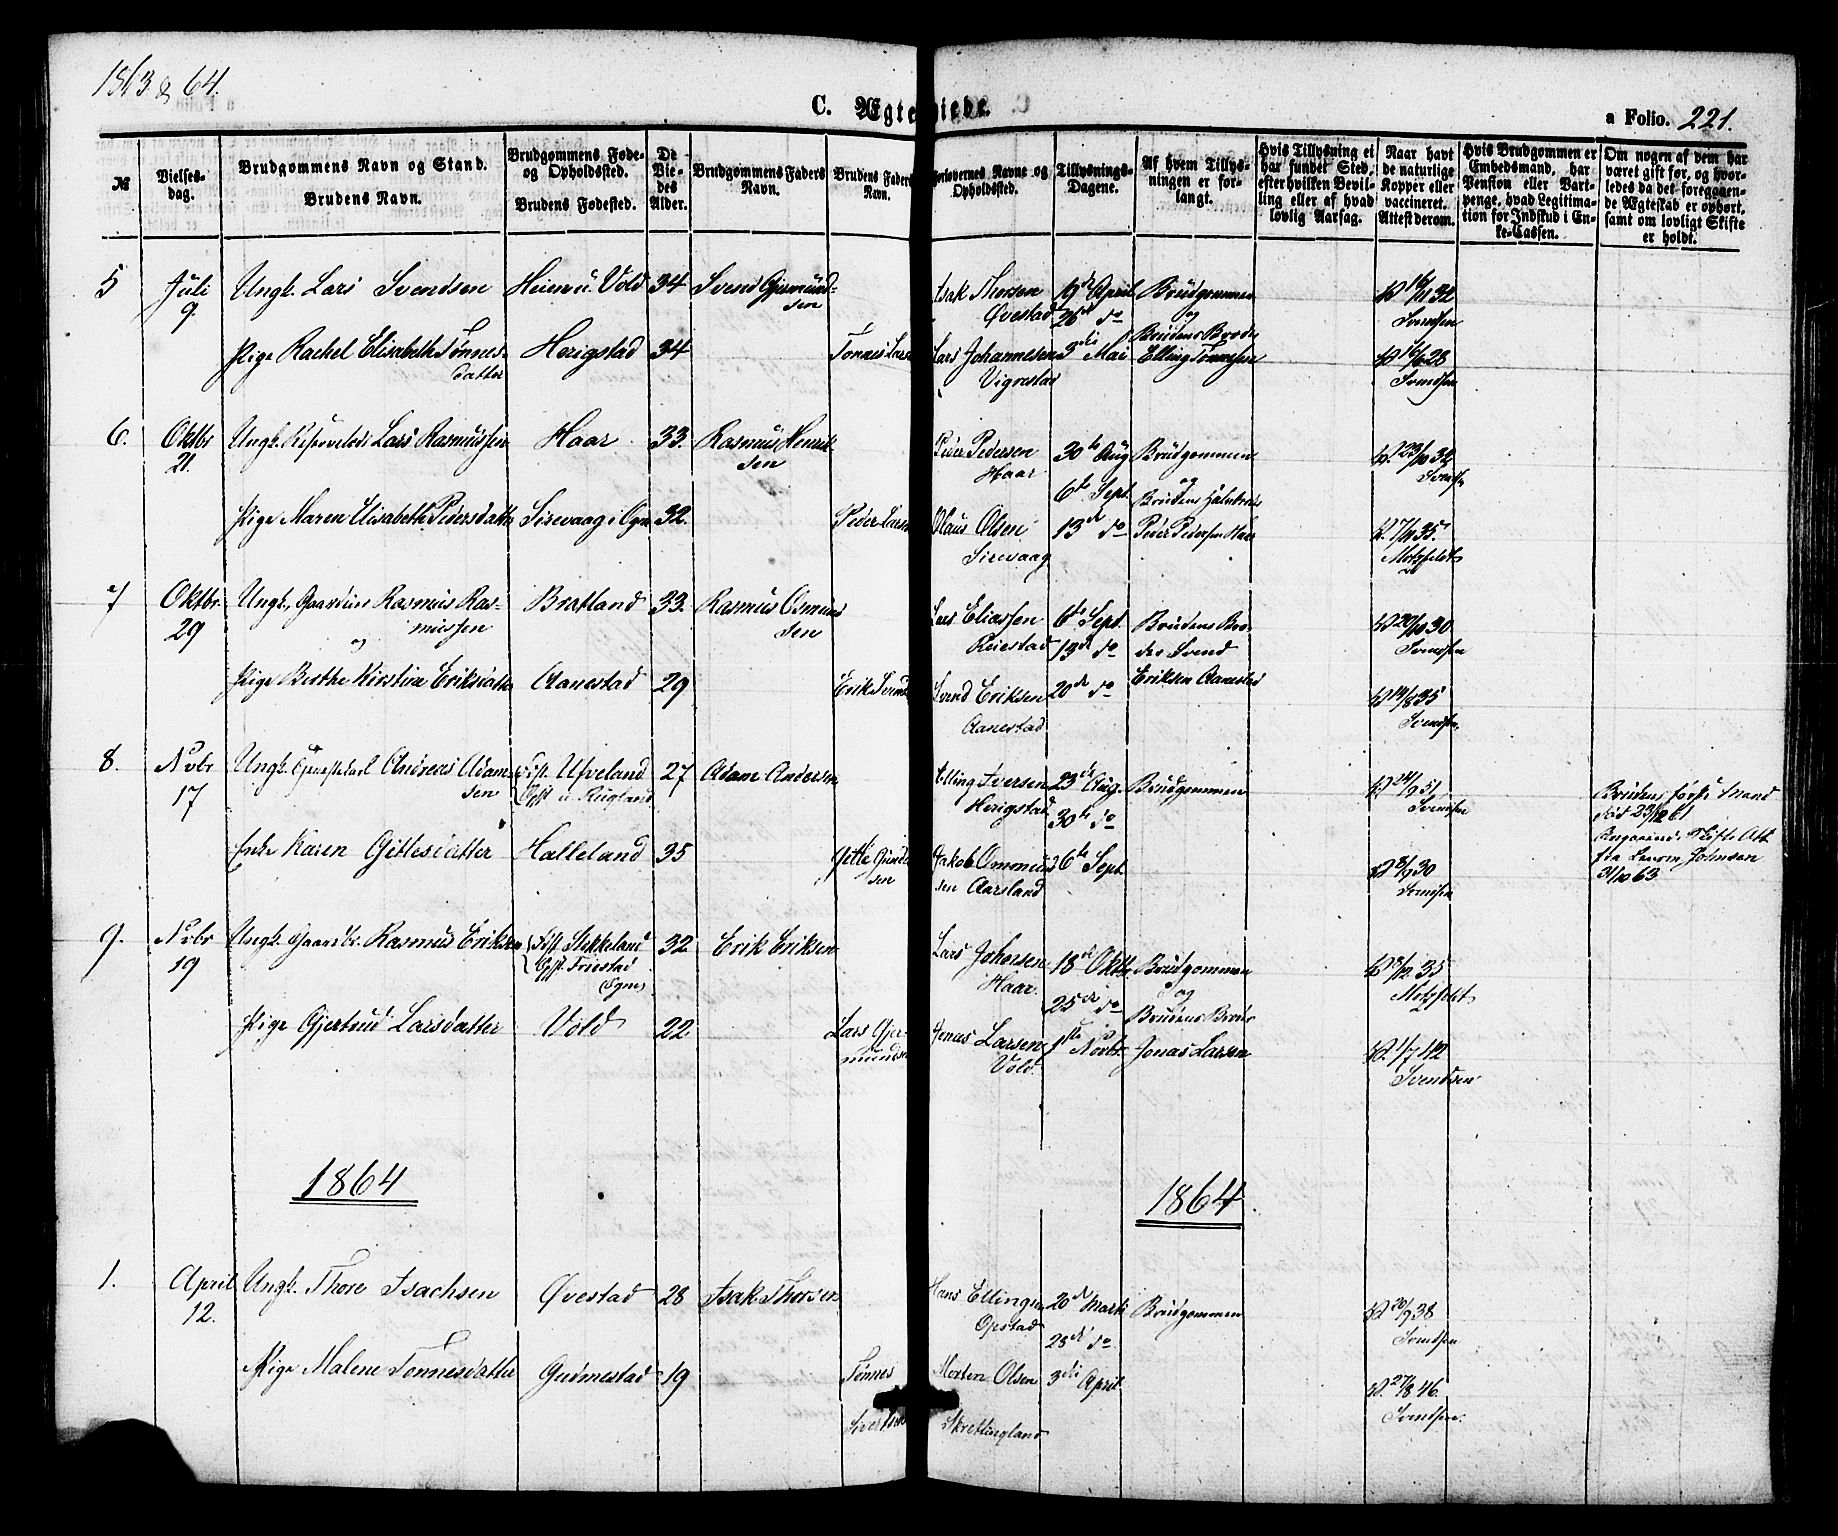 1863 & 64.
C. Ægteviede.
a Folio. 221.
№
Vielses-
dag.
Brudgommens Navn og Stand.
Brudens Navn.
Brudgommens Føde-
og Opholdssted.
Brudens Fødested.
De
Vie-
des
Alder.
Brudgommens Faders
Navn.
Brudens Faders
Navn.
Forlovernes Navne og
Opholdssted.
Tillysnings-
Dagene.
Af hvem Tillys-
ningen er for-
langt.
Hvis Tillysning ei
har fundet Sted,
efter hvilken Bevil-
ling eller af hvad
lovlig Aarsag.
Naar havt
de naturlige
Kopper eller
vaccineret.
Attest derom.
Hvis Brudgommen er
Embedsmand, har
Pension eller Vart-
penge, hvad Legitima-
tion for Indskud i En-
ke-Cassen.
Om nogen af dem har
været gift før, og hvor-
ledes da det foregaaen-
de Ægteskab er ophørt,
samt om lovligt Skifte
er holdt.
5 Juli 9. Ungk. Lars Svendsen 34 Svend Gjermund-
sen
Isak Thorsen Øvestad 19de April 26de do Brudgommen og
16/11 32 Svendsen
Pige Rachel Elisabeth Tønnes-
datter
Herigstad 34 Tønnes Lars
Lars Johannesen Vigrestad 3die Mai Brudens Broder Elling Tønnesen
16/6 28 Svendsen
6. Oktbr 21. Ungk. Lars Rasmussen Haar 33. Rasmus Henrik-
sen
Peder Pedersen Haar 30te Aug. 6te Sept. Brudgommen og
23/10 32 Svendsen
Pige Maren Elisabeth Pedersdatter Sirevaag i Ogne 32. Peder Lars
Olaus Olsen Sirevaag 13de do Peder Pedersen Haar
35. Motzfeldt
7 Oktbr. 29 Ungk. Rasmus Ras-
mussen
og
Bratland 33. Rasmus Osmund
sen
Lars Eliassen Reiestad 6te Sept. 13de do Brudens Bro-
der Svend
20/10 30 Svendsen
Pige Berthe Kirstine Eriksdatter Aanestad 29 Erik Svend
Svend Eriksen Aanestad 20de do Eriksen Aanestad
19/8 35 Svendsen
8. Novbr 17 Ungk. Andreas Adam-
sen
Fdt. Ueland
Opst. 27 Adam Andersen
Elling Iversen Herigstad 23de Aug. 30te do Brudgommen
51 Svendsen
Brudens første Mand
død 23/12 61
Enke Karen Gittesdatter Halleland 35 Gitle Gund
sen
Jakob Omund
sen Aarsland 6te Sept.
30 Svendsen
31/10 63
9. Novbr 19 Ungk. Gaardbr. Rasmus Eriksen Fdt. Stokkeland
Opst. Friestad
(Ogne)
32 Erik Eriksen
Lars Johnsen Haar. 18de Oktbr 25de do Brudgommen og
35 Motzfeldt
Pige Gjertrud Larsdatter Vold 22 Lars Gjer-
munds
Jonas Larsen Vold. 1ste Novbr. Brudens Broder Jonas Larsen
1/7 42 Svendsen
1864
1864.
1. April 12. Ungk. Thore Isachsen Øvestad 28 Isak Thorsen
Hans Ellingsen Opstad 20de Marts 28de do Brudgommen
20/9 38 Svendsen
Pige Malene Tønnesdatter Gudmestad 19 Tønnes
Sivertsen
Morten Olsen 3die April.
Skretlingland
27/8 46. Svendsen.